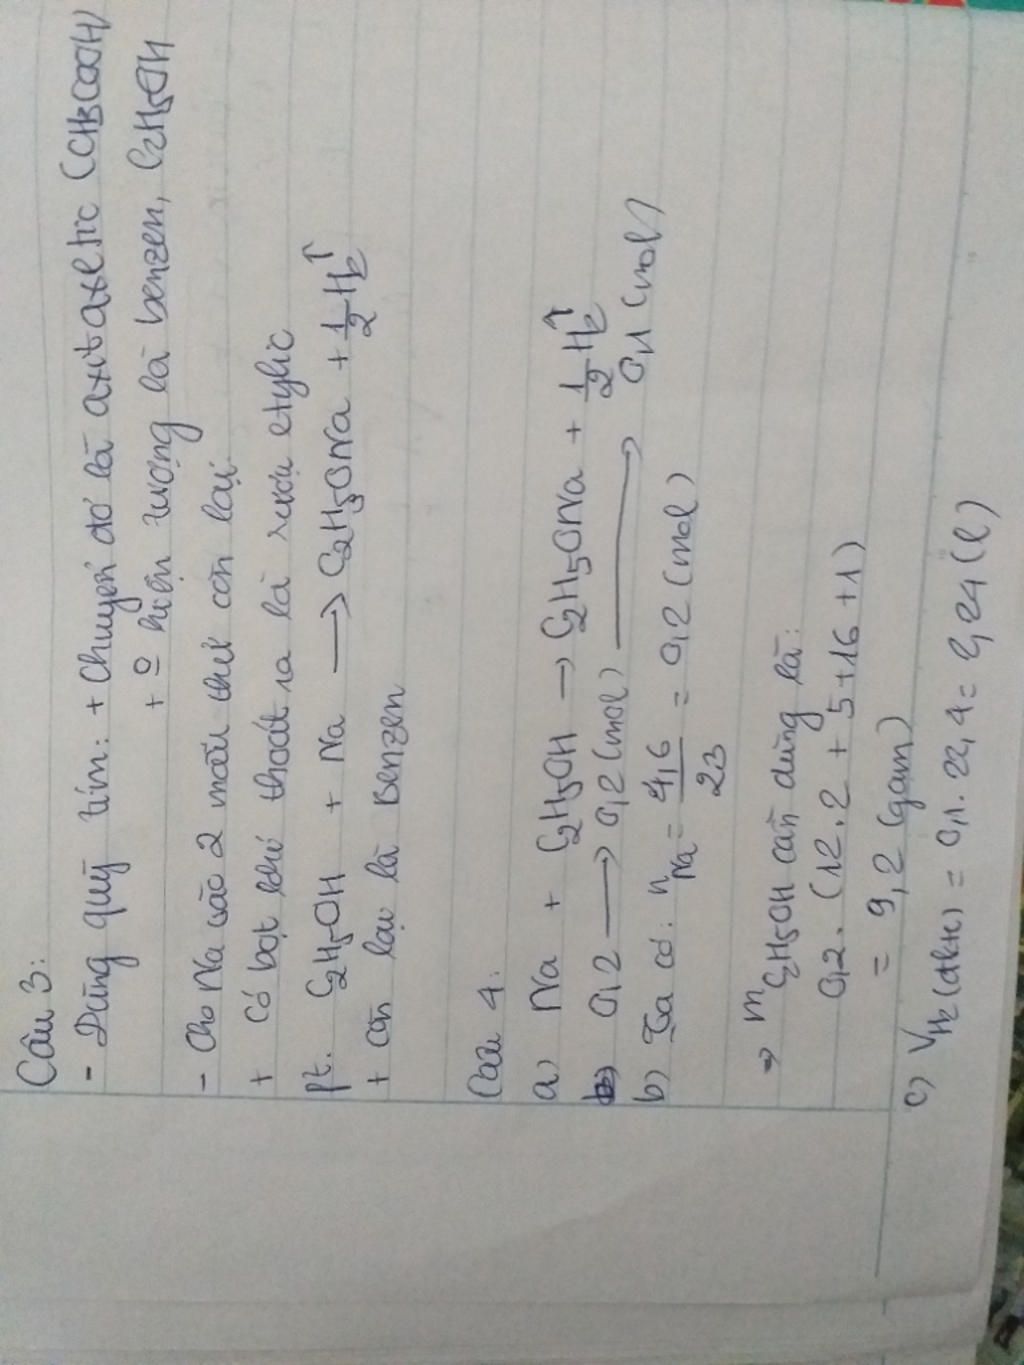 Câu 3:
- Dùng quỳ tím: + Chuyển đỏ là axit axetic (CH3COOH)
+ O hiện tượng là benzen, C2H5OH
- Cho Na vào 2 mẫu thử còn lại
+ Có bọt khí thoát ra là rượu etylic
Pt. C2H5OH + Na ⟶ C2H5ONa + 1/2 H2↑
+ còn lại là Benzen
Câu 4:
a) Na + C2H5OH → C2H5ONa + 1/2 H2↑
0,2 ⟶ 0,2 (mol) ⟶ 0,1 (mol)
b) Ta có: nNa = 4,6/23 = 0,2 (mol)
⇒ mC2H5OH cần dùng là:
0,2. (12.2 + 5 + 16 + 1)
= 9,2 (gam)
c) VH2(đktc) = 0,1. 22,4 = 2,24 (l)